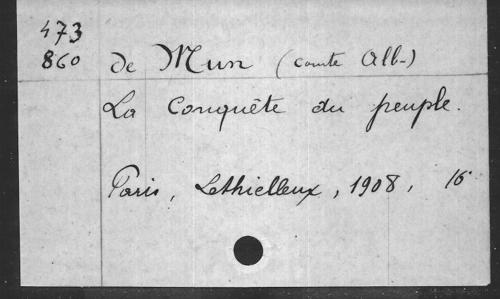 473
860
de Mun (comte Alb-)
La Conquête du peuple.
Paris, Lethielleux, 1908, 16